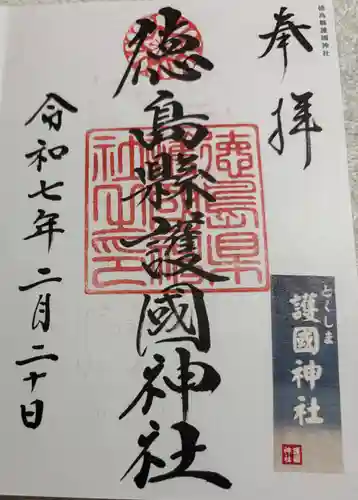 徳島縣護國神社
奉拝
徳島縣護國神社
徳島県護國神社之印
とくしま
護國神社
令和七年二月二十日